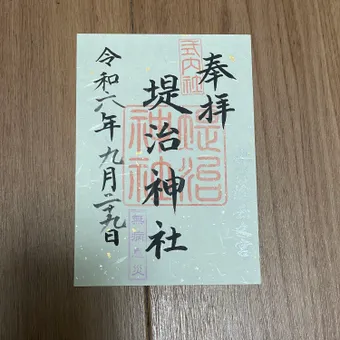 奉拝
式内社
堤治神社
堤治神社
令和六年九月二十九日